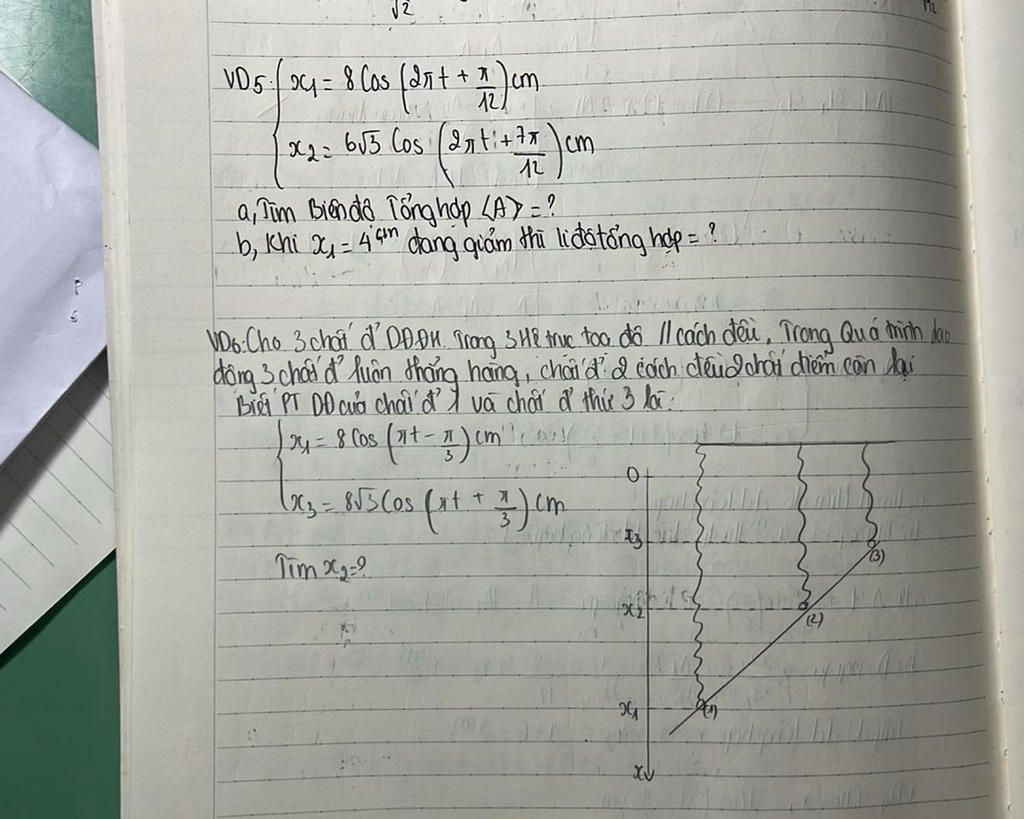 √2
VD5: { x₁ = 8 Cos (2πt + π/12) cm
x₂ = 6√3 Cos (2πt + 7π/12) cm
a, Tìm Biên độ Tổng hợp ⟨A⟩ = ?
b, Khi x₁ = 4 cm đang giảm thì li độ tổng hợp = ?
VD6: Cho 3 chất đ' DĐĐH. Trong 3 Hệ trục toạ độ // cách đều, Trong Quá trình dao
động 3 chất đ' luôn thẳng hàng, chất đ' 2 cách đều 2 chất điểm còn lại
Biết PT DĐ của chất đ' 1 và chất đ' thứ 3 là:
{ x₁ = 8 Cos (πt - π/3) cm
x₃ = 8√3 Cos (πt + π/3) cm
Tìm x₂ = ?
O
x₃
(3)
x₂
(2)
x₁
(1)
x